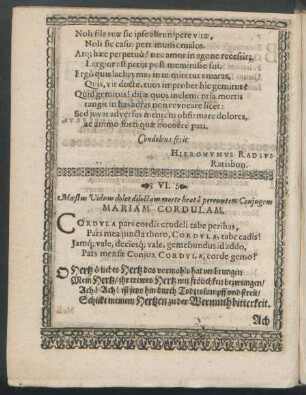 Noli fila tuæ sic ipse abrumpere vitæ,
Noli sic casus pert misse malos.
Atq; hæc perpetuò! nec amor in agone recessit,
Largior est petijt post meminisse sui.
Ergò quis lachrymas in te miretur amaras,
Quis, vir docte, tuos improbet hîc gemitus?
Quid gemitus? diræ quos inclementia mortis
tangit in has auras non revocare licet:
Sed juvat adversus mentem obfirmare dolores,
ac animo forti quæ nocuêre pati.
Condolens fecit
HIERONYMUS RADIUS
Ratisbon.
VI.
Mœstus Viduus dolet dilectam morte beatâ peremtam Conjugem
MARIAM CORDULAM.
CORDULA pars cordis crudeli tabe peribas,
Pars mea juncta thoro, CORDULA, tabe cadis!
Jamq; vale, deciesq; vale, gemebundus id addo,
Pars mense Conjux CORDULA, corde gemo!
O Hertz ô liebes Hertz das vormahls hat verbrungen
Mein Hertz/ ihr trewes Hertz mit fröligkeit bezwungen/
Ach! Ach! ist jtzo hin durch Todtes kampff und streit/
Schickt meinem Hertzen zu der Wermuth bitterkeit.
Ach